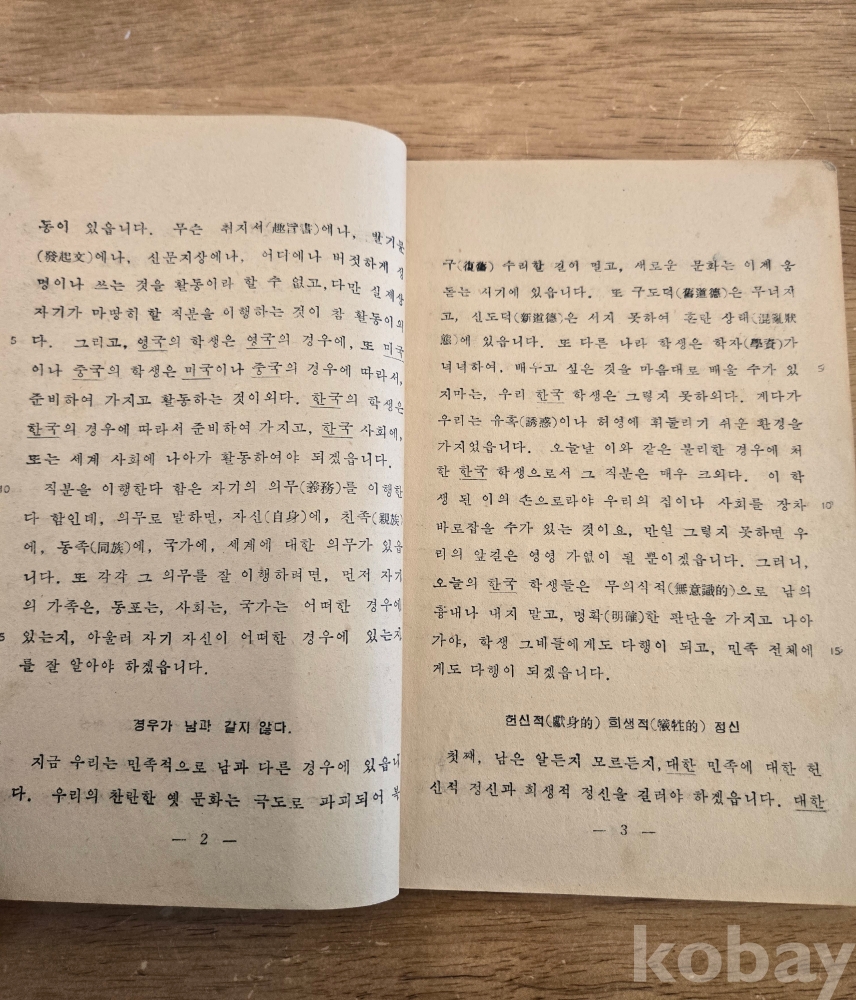 동이 있읍니다. 무슨 취지서(趣旨書)에나, 발기문
(發起文)에나, 신문지상에나, 어디에나 버젓하게 성
명이나 쓰는 것을 활동이라 할 수 없고, 다만 실제상
자기가 마땅히 할 직분을 이행하는 것이 참 활동이외
5 다. 그리고, 영국의 학생은 영국의 경우에, 또 미국
이나 중국의 학생은 미국이나 중국의 경우에 따라서,
준비하여 가지고 활동하는 것이외다. 한국의 학생은
한국의 경우에 따라서 준비하여 가지고, 한국 사회에,
또는 세계 사회에 나아가 활동하여야 되겠읍니다.
10 직분을 이행한다 함은 자기의 의무(義務)를 이행한
다 함인데, 의무로 말하면, 자신(自身)에, 친족(親族)
에, 동족(同族)에, 국가에, 세계에 대한 의무가 있읍
니다. 또 각각 그 의무를 잘 이행하려면, 먼저 자기
의 가족은, 동포는, 사회는, 국가는 어떠한 경우에
5 있는지, 아울러 자기 자신이 어떠한 경우에 있는지
를 잘 알아야 하겠읍니다.
경우가 남과 같지 않다.
지금 우리는 민족적으로 남과 다른 경우에 있읍니
다. 우리의 찬란한 옛 문화는 극도로 파괴되어 복
— 2 —
구(復舊) 수리할 길이 멀고, 새로운 문화는 이제 움
돋는 시기에 있읍니다. 또 구도덕(舊道德)은 무너지
고, 신도덕(新道德)은 서지 못하여 혼란 상태(混亂狀
態)에 있읍니다. 또 다른 나라 학생은 학자(學資)가
녀녀하여, 배우고 싶은 것을 마음대로 배울 수가 있 5
지마는, 우리 한국 학생은 그렇지 못하외다. 게다가
우리는 유혹(誘惑)이나 허영에 휘둘리기 쉬운 환경을
가지었읍니다. 오늘날 이와 같은 불리한 경우에 처
한 한국 학생으로서 그 직분은 매우 크외다. 이 학
생 된 이의 손으로라야 우리의 집이나 사회를 장차 10
바로잡을 수가 있는 것이요, 만일 그렇지 못하면 우
리의 앞길은 영영 가없이 될 뿐이겠읍니다. 그러니,
오늘의 한국 학생들은 무의식적(無意識的)으로 남의
흉내나 내지 말고, 명확(明確)한 판단을 가지고 나아
가야, 학생 그네들에게도 다행이 되고, 민족 전체에 15
게도 다행이 되겠읍니다.
헌신적(獻身的) 희생적(犧牲的) 정신
첫째, 남은 알든지 모르든지, 대한 민족에 대한 헌
신적 정신과 희생적 정신을 길러야 하겠읍니다. 대한
— 3 —
kobay